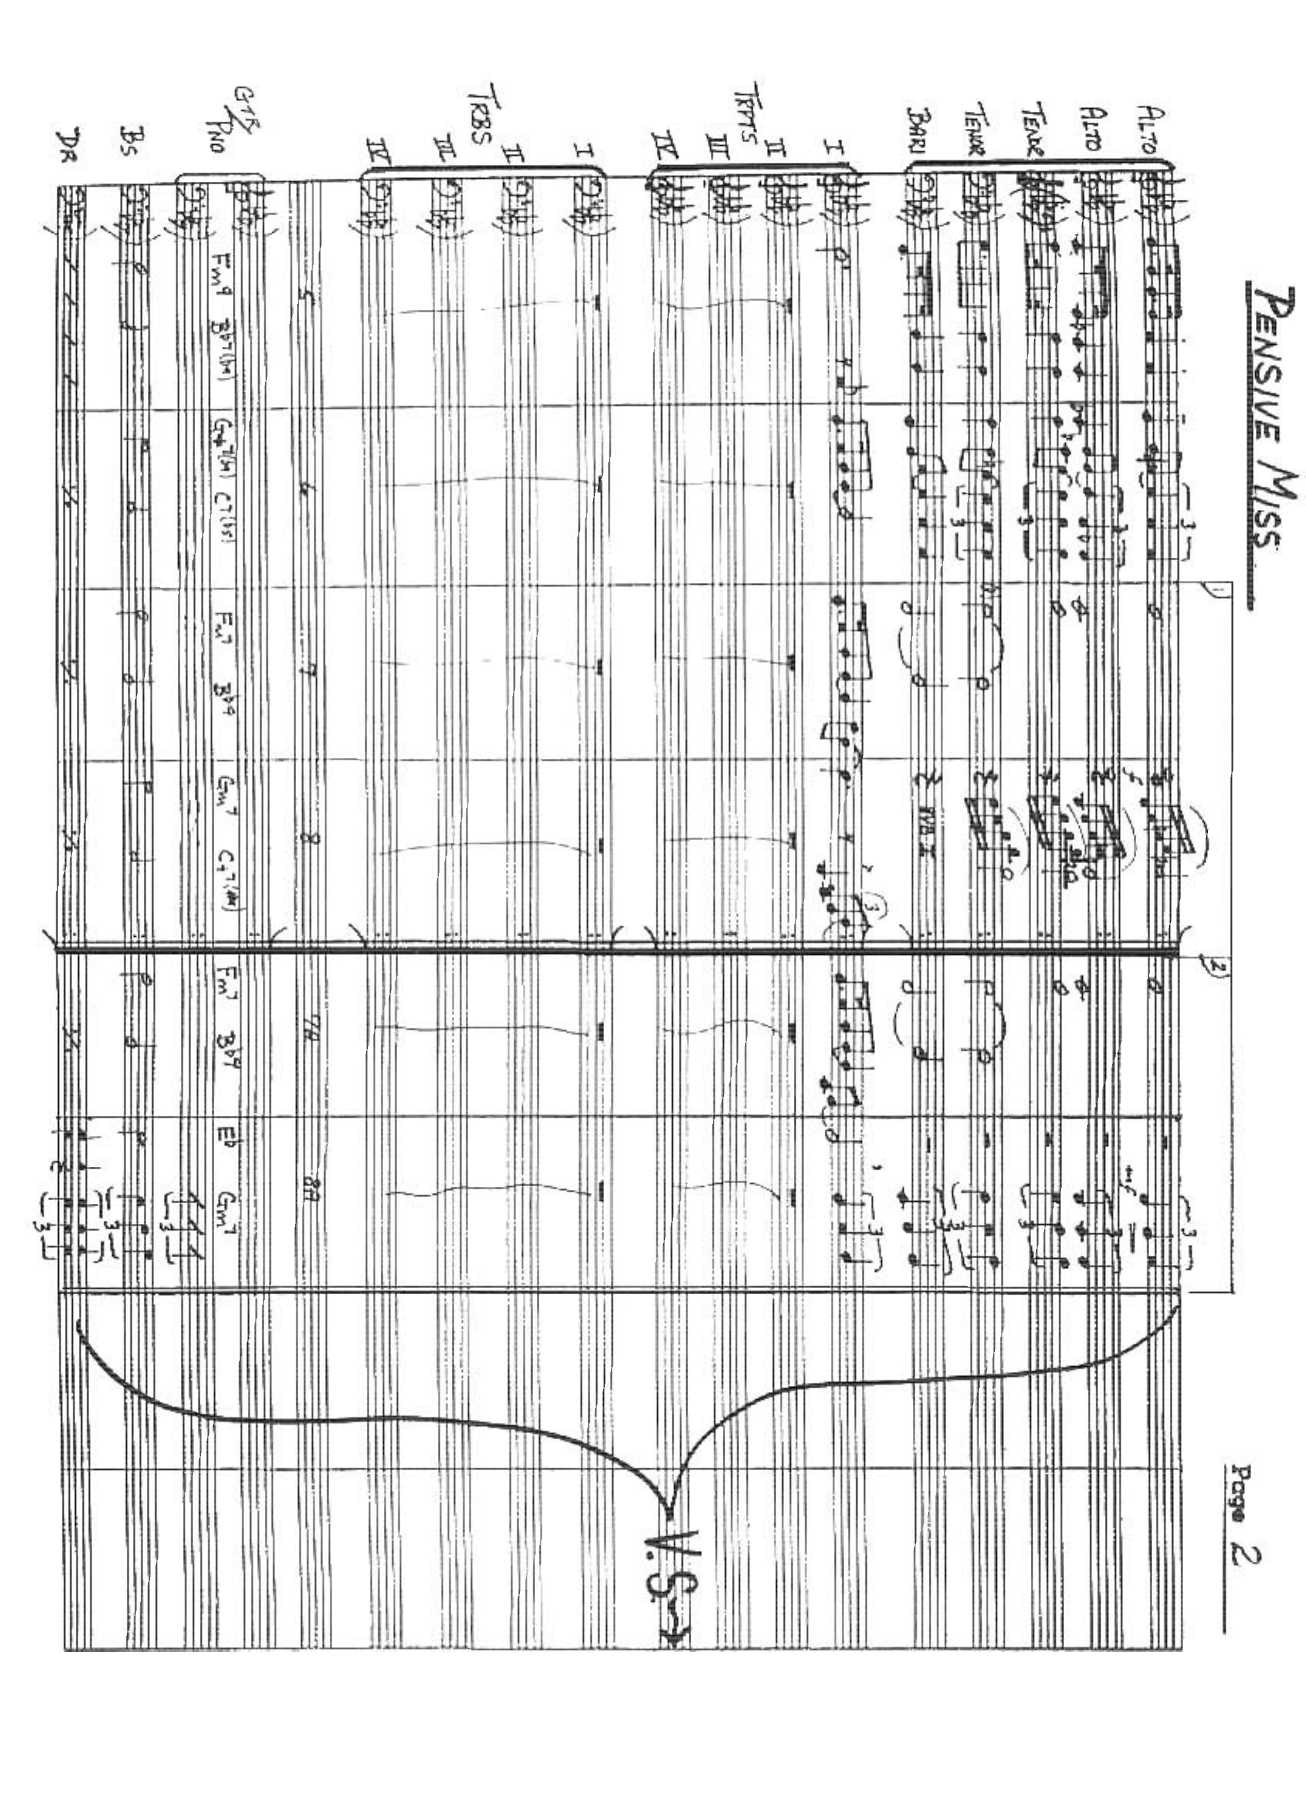 PENSIVE MISS
Page 2
1)
2)
ALTO
3
3
ALTO
f
mf
3
3
TENOR
3
3
TENOR
3
3
BARI
3
TRPTS
I
3
3
II
III
IV
TRBS
I
II
III
IV
5 6 7 8 7A 8A
GTR/
PNO
Fm9 Fm7 B♭9 Gm7 Fm7 B♭9 E♭ Gm7
3
BS
3
DR
3
V.S.→